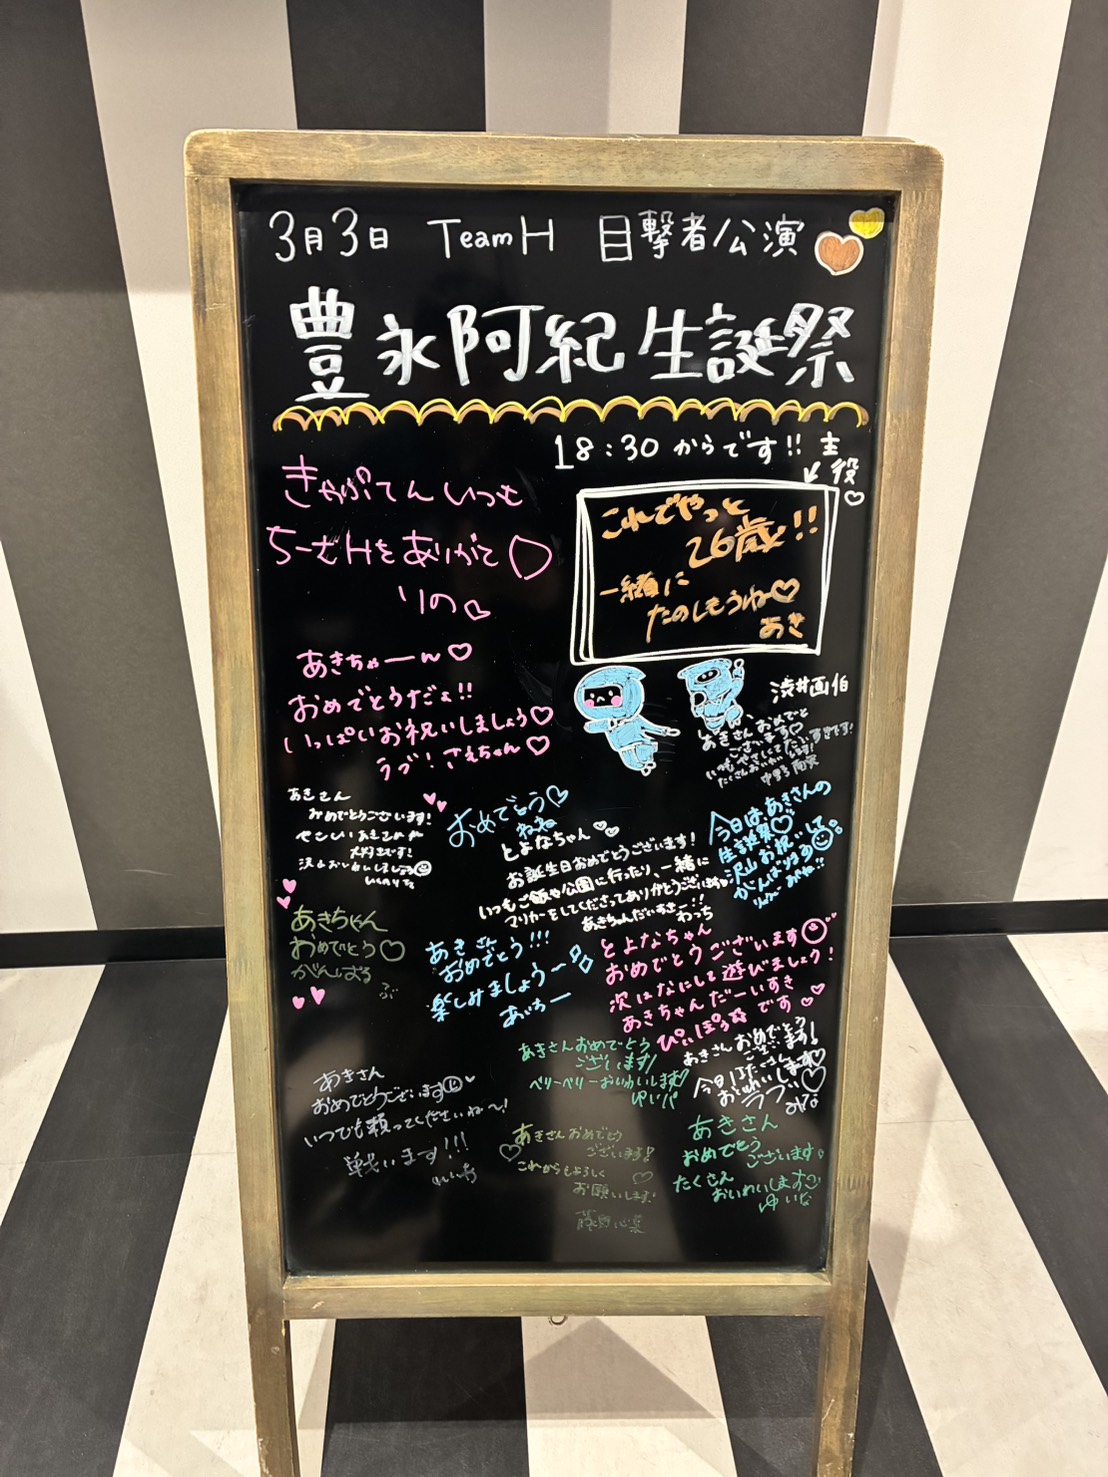 3月3日 TeamH 目撃者公演
豊永阿紀生誕祭
18:30からです!! 主役
これでやっと
26歳!!
一緒に
たのしもうね♡
あき
きゃぷてん いつも
ちーむHをありがと♡
りの♡
あきちゃーん♡
おめでとうだよ!!
いっぱいお祝いしましょう♡
ラブ! さえちゃん♡
渋井画伯
あきさん おめでと
ございます♡
いつもやさしくて だいすきです!
あきさん
おめでとうございます!
やさしいあきさんが
大好きです!
沢山お祝いしましょう
おめでとう♡
ねね
今日はあきさんの
生誕祭♡
沢山お祝いして
がんばりする
とよなちゃん
お誕生日おめでとうございます!
いつもご飯や公園に行ったり、一緒に
マリカーをしてくださってありがとうございます
あきちゃんだいすきー!!
わっち
あきちゃん
おめでとう♡
がんばる
ぶ
あきさん
おめでとう!!!
楽しみましょう〜
あいちー
とよなちゃん
おめでとうございます
次はなにして遊びましょう!
あきちゃんだーいすき
ぴぃぽぅ です
あきさんおめでとう
ございます!
ベリーベリーおいわいします♡
ゆいパ
あきさん おめでとう
ございます!
今日はたくさん
おいわいします♡
ラブ♡
みな
あきさん
おめでとうございます
いつでも頼ってくださいね〜!
戦います!!!
あきさんおめでとう
ございます!
これからもよろしく
お願いします!
藤野心葉
あきさん
おめでとう
ございます!
たくさん
おいわいします
ゆいな